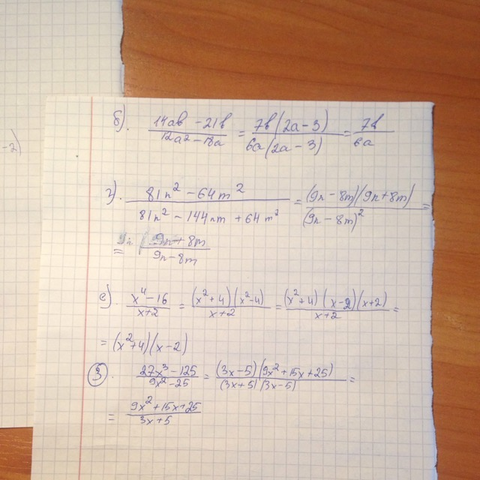 -2)
б). (14ab - 21b)/(12a² - 18a) = 7b(2a - 3)/6a(2a - 3) = 7b/6a
г) (81n² - 64m²)/(81n² - 144nm + 64m²) = (9n - 8m)(9n + 8m)/(9n - 8m)² =
= (9n + 8m)/(9n - 8m)
е) (x⁴ - 16)/(x + 2) = (x² + 4)(x² - 4)/(x + 2) = (x² + 4)(x - 2)(x + 2)/(x + 2) =
= (x² + 4)(x - 2)
③. (27x³ - 125)/(9x² - 25) = (3x - 5)(9x² + 15x + 25)/(3x + 5)(3x - 5) =
= (9x² + 15x + 25)/(3x + 5)